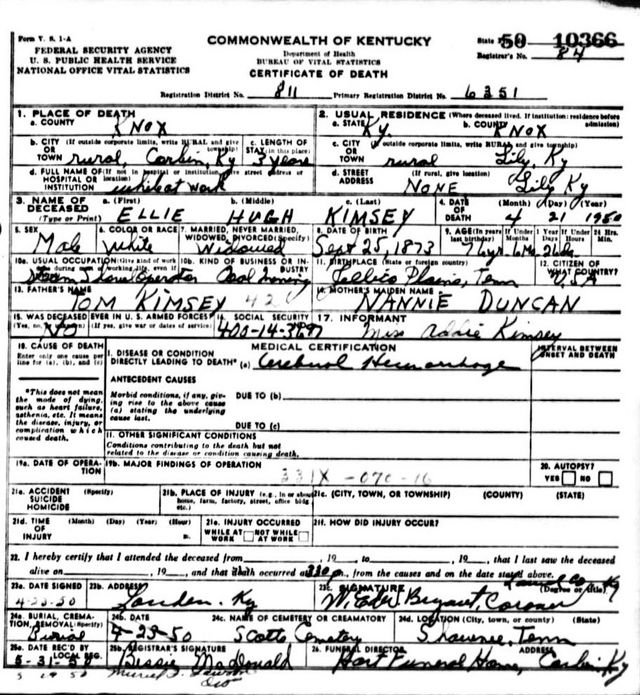 Form V. S. 1-A
FEDERAL SECURITY AGENCY
U. S. PUBLIC HEALTH SERVICE
NATIONAL OFFICE VITAL STATISTICS
COMMONWEALTH OF KENTUCKY
Department of Health
BUREAU OF VITAL STATISTICS
CERTIFICATE OF DEATH
State 50 10366
Registrar's No. 84
Registration District No. 811 Primary Registration District No. 6351
1. PLACE OF DEATH
a. COUNTY Knox
2. USUAL RESIDENCE (Where deceased lived. If institution: residence before admission)
a. STATE Ky. b. COUNTY Knox
b. CITY (If outside corporate limits, write RURAL and give township) OR TOWN rural, Corbin, Ky
c. LENGTH OF STAY (in this place) 3 years
c. CITY (If outside corporate limits, write RURAL and give township) OR TOWN rural Lily, Ky
d. FULL NAME OF (If not in hospital or institution, give street address or location) HOSPITAL OR INSTITUTION while at work
d. STREET ADDRESS (If rural, give location) NONE Lily Ky
3. NAME OF DECEASED (Type or Print) a. (First) ELLIE b. (Middle) HUGH c. (Last) KIMSEY
4. DATE OF DEATH (Month) (Day) (Year) 4 21 1950
5. SEX Male
6. COLOR OR RACE White
7. MARRIED, NEVER MARRIED, WIDOWED, DIVORCED (Specify) Widowed
8. DATE OF BIRTH Sept 25, 1873
9. AGE (In years last birthday) If Under 1 Year If Under 24 Hrs. Months Days Hours Min.
10a. USUAL OCCUPATION (Give kind of work done during most of working life, even if retired) Shovel Operator
10b. KIND OF BUSINESS OR INDUSTRY Coal
11. BIRTHPLACE (State or foreign country) Tellico Plains, Tenn
12. CITIZEN OF WHAT COUNTRY? USA
13. FATHER'S NAME TOM KIMSEY 420
14. MOTHER'S MAIDEN NAME NANNIE DUNCAN
15. WAS DECEASED EVER IN U. S. ARMED FORCES? (Yes, no, (If yes, give war or dates of service) NO
16. SOCIAL SECURITY 400-14-3297
17. INFORMANT Miss Addie Kimsey
18. CAUSE OF DEATH
Enter only one cause per line for (a), (b), and (c)
MEDICAL CERTIFICATION
INTERVAL BETWEEN ONSET AND DEATH
I. DISEASE OR CONDITION
DIRECTLY LEADING TO DEATH* (a) Cerebral Hemorrhage
*This does not mean the mode of dying, such as heart failure, asthenia, etc. It means the disease, injury, or complication which caused death.
ANTECEDENT CAUSES
Morbid conditions, if any, giving rise to the above cause (a) stating the underlying cause last.
DUE TO (b)
DUE TO (c)
II. OTHER SIGNIFICANT CONDITIONS
Conditions contributing to the death but not related to the disease or condition causing death.
19a. DATE OF OPERATION
19b. MAJOR FINDINGS OF OPERATION
331X-070-16
20. AUTOPSY?
YES NO
21a. ACCIDENT SUICIDE HOMICIDE (Specify)
21b. PLACE OF INJURY (e.g., in or about home, farm, factory, street, office bldg., etc.)
21c. (CITY, TOWN, OR TOWNSHIP) (COUNTY) (STATE)
21d. TIME OF INJURY (Month) (Day) (Year) (Hour) m.
21e. INJURY OCCURRED
WHILE AT WORK NOT WHILE AT WORK
21f. HOW DID INJURY OCCUR?
22. I hereby certify that I attended the deceased from , 19 , to , 19 , that I last saw the deceased
alive on , 19 , and that death occurred at m., from the causes and on the date stated above.
23a. DATE SIGNED 4-23-50
23b. ADDRESS London, Ky
23c. SIGNATURE (Degree or title) Bryant, Coroner
24a. BURIAL, CREMATION, REMOVAL (Specify) Burial
24b. DATE 4-23-50
24c. NAME OF CEMETERY OR CREMATORY Scotts Cemetery
24d. LOCATION (City, town, or county) (State) Shawanee, Tenn
25a. DATE REC'D BY LOCAL REG. 5-31-50
25b. REGISTRAR'S SIGNATURE Bessie MacDonald
26. FUNERAL DIRECTOR ADDRESS Hart Funeral Home, Corbin, Ky